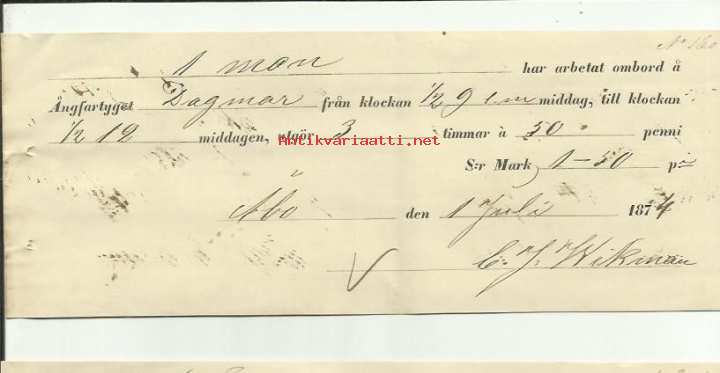 No 160
1 man har arbetat ombord å
Ångfartyget Dagmar från klockan 1/2 9 em middag, till klockan
1/2 12 middagen, utgör 3 timmar à 50 penni
Antikvariaatti.net
S:r Mark 1-50 p:i
Åbo den 1 Juli 1874
C. J. Wikman